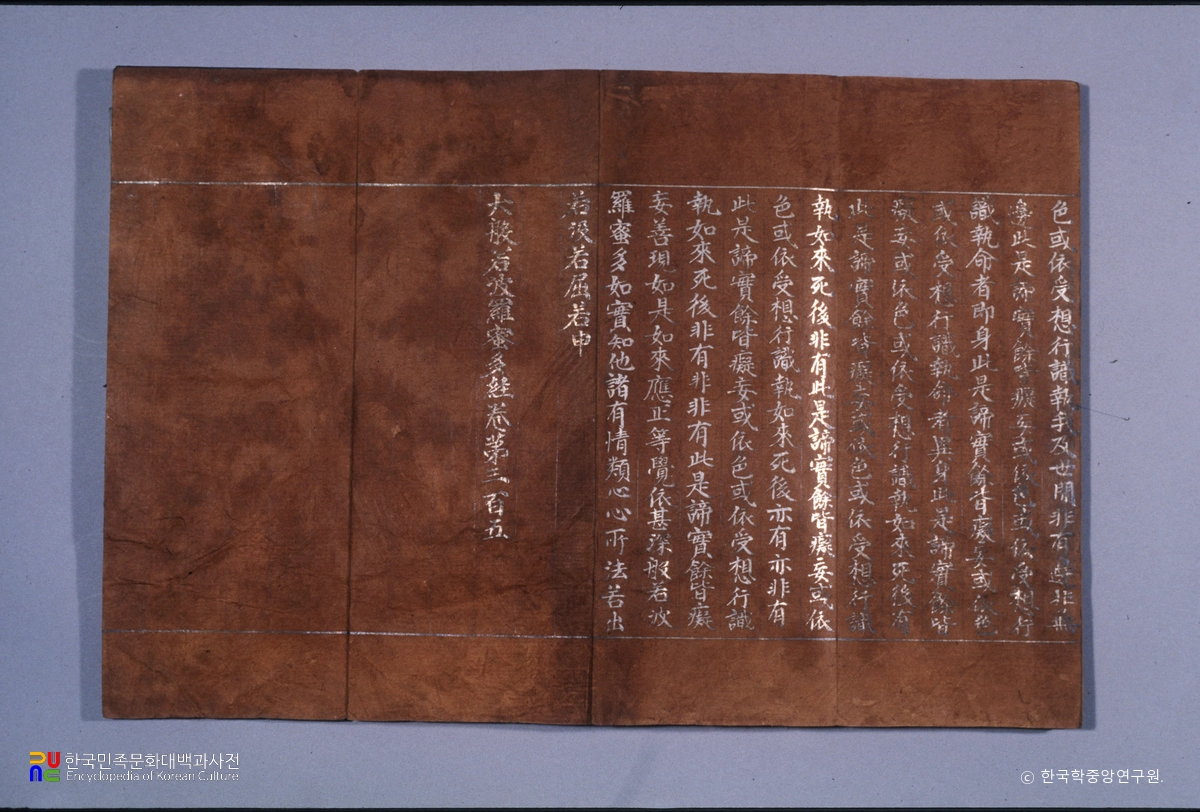 色或依受想行識執我及世間非有邊非無
邊此是諦實餘皆癡妄或依色或依受想行
識執命者即身此是諦實餘皆癡妄或依色
或依受想行識執命者異身此是諦實餘皆
癡妄或依色或依受想行識執如來死後有
此是諦實餘皆癡妄或依色或依受想行識
執如來死後非有此是諦實餘皆癡妄或依
色或依受想行識執如來死後亦有亦非有
此是諦實餘皆癡妄或依色或依受想行識
執如來死後非有非非有此是諦實餘皆癡
妄善現如是如來應正等覺依甚深般若波
羅蜜多如實知他諸有情類心心所法若出
若沒若屈若申
大般若波羅蜜多經卷第三百五
한국민족문화대백과사전
Encyclopedia of Korean Culture
© 한국학중앙연구원.